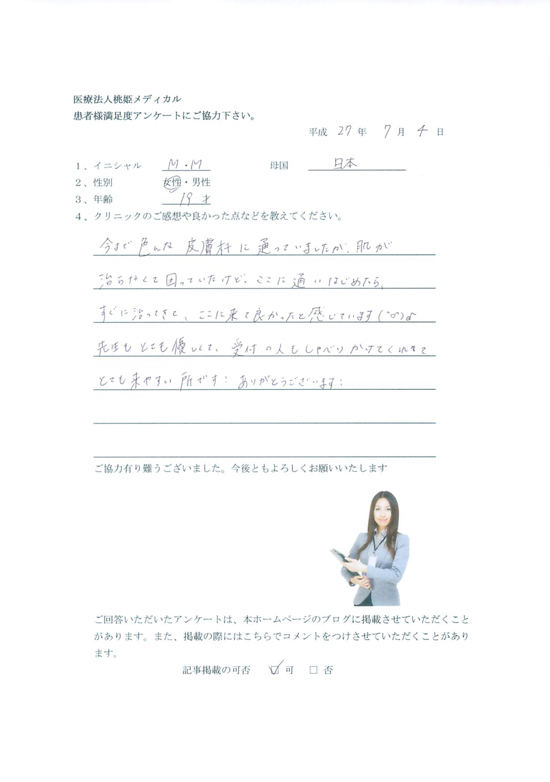 医療法人桃姫メディカル
患者様満足度アンケートにご協力下さい。
平成 27 年 7 月 4 日
1、イニシャル M・M 母国 日本
2、性別 女性・男性
3、年齢 19才
4、クリニックのご感想や良かった点などを教えてください。
今まで色んな皮膚科に通っていましたが、肌が
治らなくて困っていたけど、ここに通いはじめたら、
すぐに治ってきて、ここに来て良かったと感じています(^o^)♪
先生もとても優しくて、受付の人もしゃべりかけてくれて
とても来やすい所です！ありがとうございます！
ご協力有り難うございました。今後ともよろしくお願いいたします
ご回答いただいたアンケートは、本ホームページのブログに掲載させていただくこと
があります。また、掲載の際にはこちらでコメントをつけさせていただくことがあり
ます。
記事掲載の可否 ☑ 可 □ 否